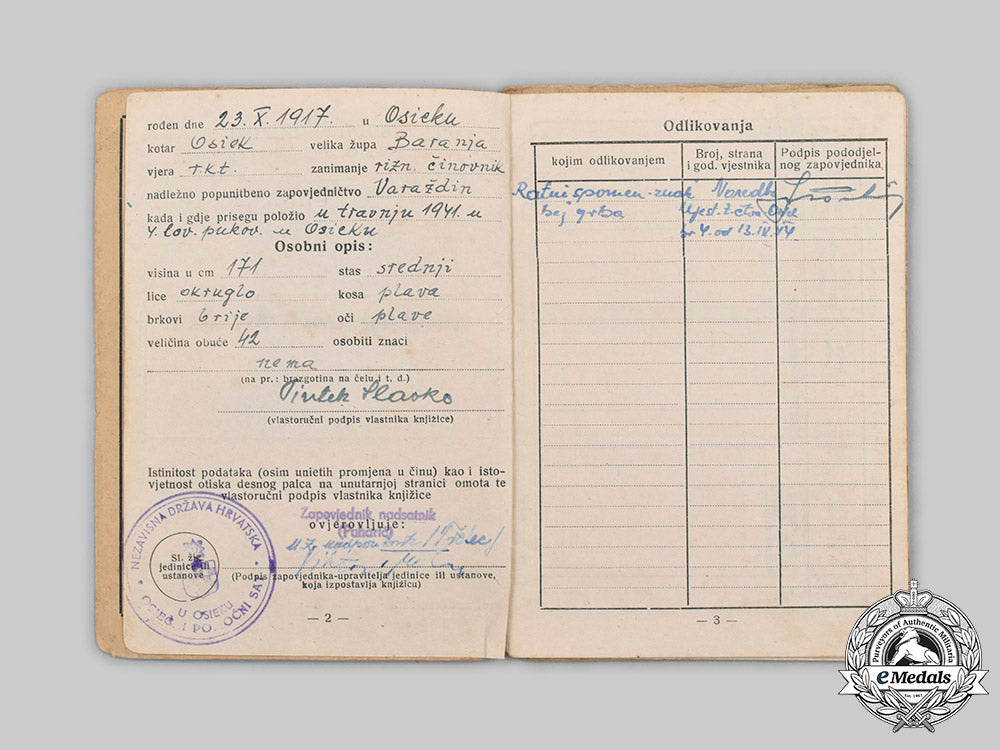 rođen dne 23. X. 1917. u Osieku
kotar Osiek velika župa Baranja
vjera r.kt. zanimanje rizn. činovnik
nadležno popunitbeno zapovjedničtvo Varaždin
kada i gdje prisegu položio u travnju 1941. u
4. lov. pukov. u Osieku
Osobni opis:
visina u cm 171 stas srednji
lice okruglo kosa plava
brkovi brije oči plave
veličina obuće 42 osobiti znaci
nema
(na pr.: brazgotina na čelu i t. d.)
Slavko
(vlastoručni podpis vlastnika knjižice)
Istinitost podataka (osim unietih promjena u činu) kao i isto-
vjetnost otiska desnog palca na unutarnjoj stranici omota te
vlastoručni podpis vlastnika knjižice
Zapovjednik nadsatnik
ovjerovljuje:
NEZAVISNA DRŽAVA HRVATSKA
Sl. žig
jedinice ili
ustanove
U OSIEKU
(Podpis zapovjednika-upravitelja jedinice ili ustanove,
koja izpostavlja knjižicu)
— 2 —
Odlikovanja
kojim odlikovanjem
Broj, strana
i god. vjestnika
Podpis pododjel-
nog zapovjednika
Ratni spomen-znak
bez grba
br 4. od 13. IV. 44.
— 3 —
Purveyors of Authentic Militaria
eMedals